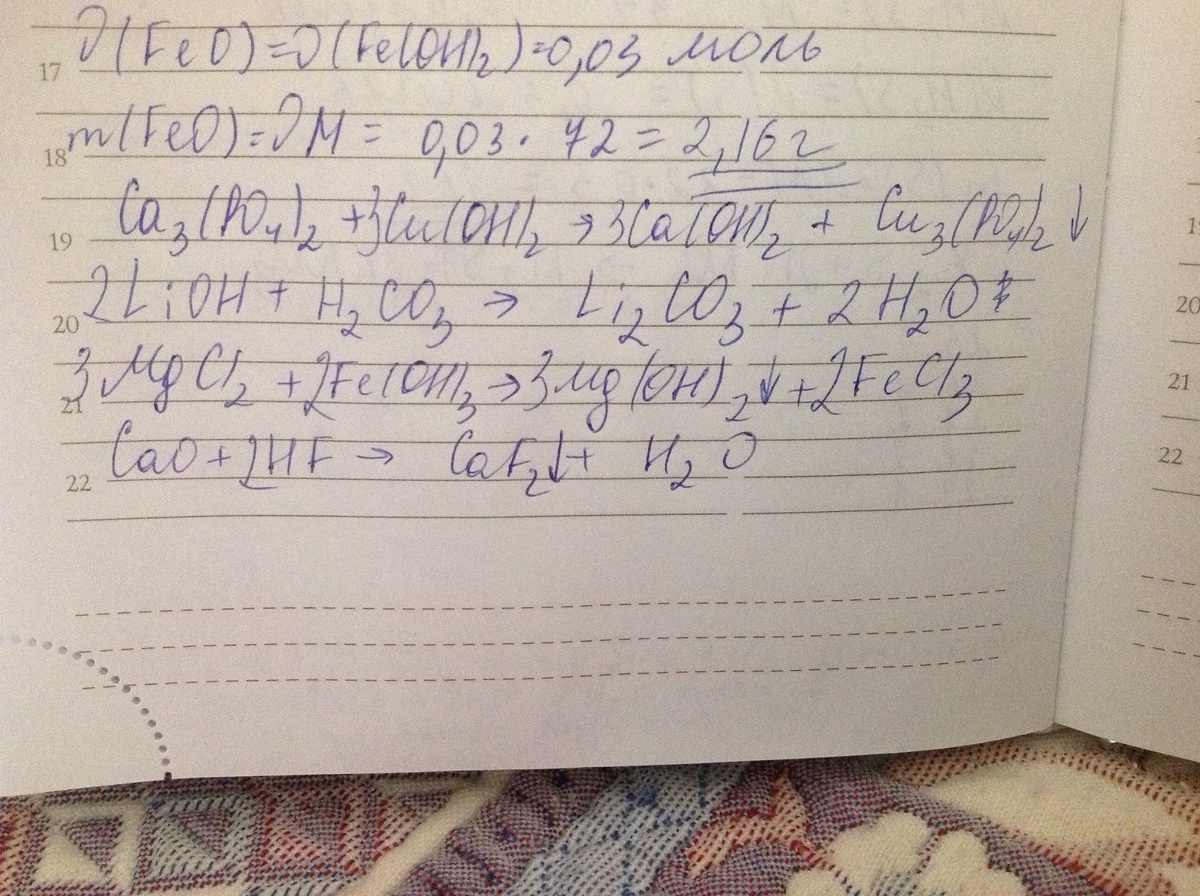 17 ν(FeO)=ν(Fe(OH)₂)=0,03 моль
18 m(FeO)=νM = 0,03 · 72 = 2,16 г
19 Ca₃(PO₄)₂ + 3Cu(OH)₂ → 3Ca(OH)₂ + Cu₃(PO₄)₂↓ 19
20 2LiOH + H₂CO₃ → Li₂CO₃ + 2H₂O 20
21 3MgCl₂ + 2Fe(OH)₃ → 3Mg(OH)₂↓ + 2FeCl₃ 21
22 CaO + 2HF → CaF₂↓ + H₂O 22